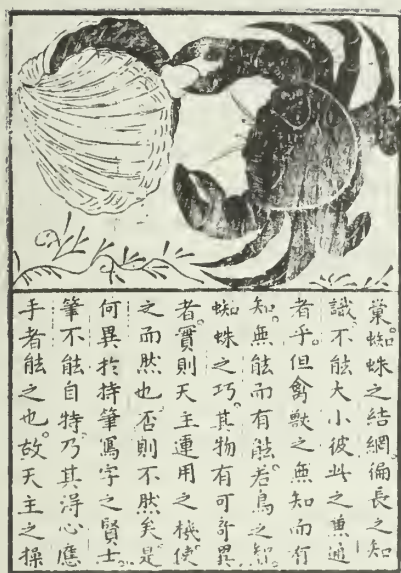 巢。蜘蛛之結網。偏長之知
識。不能大小彼此之兼通
者乎。但禽獸之無知而有
知。無能而有能。若鳥之智。
蜘蛛之巧。其物有可奇異
者。實則天主運用之機使
之而然也。否則不然矣。是
何異於持筆寫字之賢士。
筆不能自特。乃其淂心應
手者能之也。故天主之操